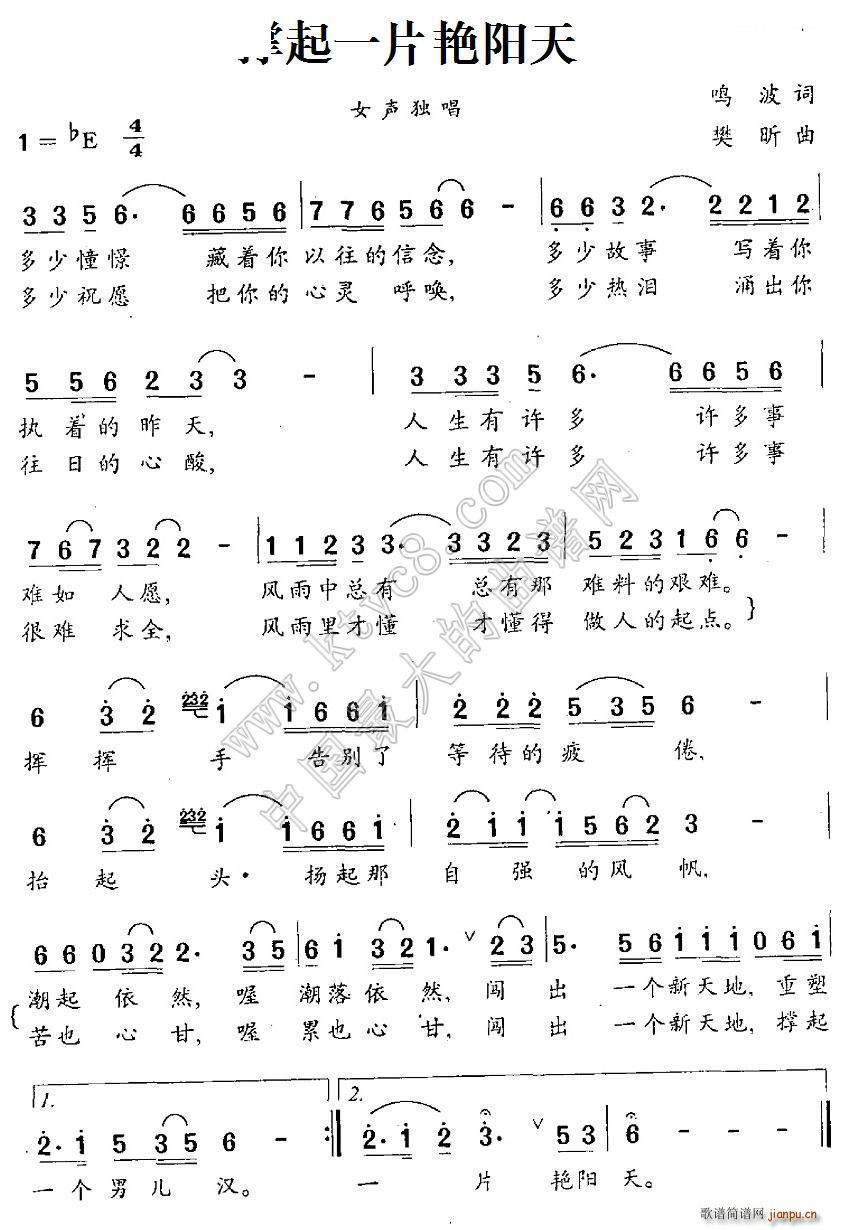 撑起一片艳阳天
女声独唱
鸣波词
1=♭E 4/4
樊昕曲
3 3 5 6· 6 6 5 6 | 7 7 6 5 6 6 - | 6 6 3 2· 2 2 1 2 |
多少憧憬 藏着你 以往的信念, 多少故事 写着你
多少祝愿 把你的 心灵 呼唤, 多少热泪 涌出你
5 5 6 2 3 3 - | 3 3 3 5 6· 6 6 5 6 |
执着的昨天, 人生有许多 许多事
往日的心酸, 人生有许多 许多事
7 6 7 3 2 2 - | 1 1 2 3 3· 3 3 2 3 | 5 2 3 1 6 6 - |
难如人愿, 风雨中总有 总有那 难料的艰难。
很难求全, 风雨里才懂 才懂得 做人的起点。}
6 3 2 232 1 1 6 6 1 | 2 2 2 5 3 5 6 - |
挥挥手 告别了 等待的疲倦,
6 3 2 232 1 1 6 6 1 | 2 1 1 1 5 6 2 3 - |
抬起头· 扬起那 自强的风帆,
6 6 0 3 2 2· 3 5 | 6 1 3 2 1· ∨ 2 3 | 5· 5 6 1 1 1 0 6 1 |
潮起依然, 喔 潮落依然, 闯出 一个新天地, 重塑
{苦也心甘, 喔 累也心甘, 闯出 一个新天地, 撑起
1. 2.
2· 1 5 3 5 6 - :‖ 2· 1 2 3· ∨ 5 3 | 6 - - - ‖
一个男儿汉。 一片 艳阳天。
www.ktvc8.com
中国最大的曲谱网
歌谱简谱网
jianpu.cn